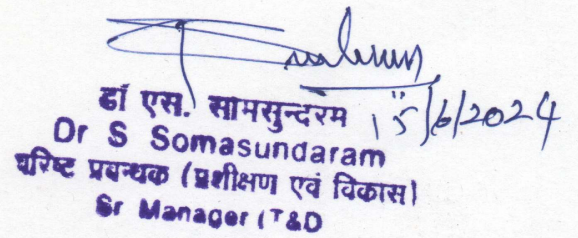 डॉ एस. सामसुन्दरम 15/6/2024
Dr S Somasundaram
वरिष्ट प्रबन्धक (प्रशीक्षण एवं विकास)
Sr Manager (T&D